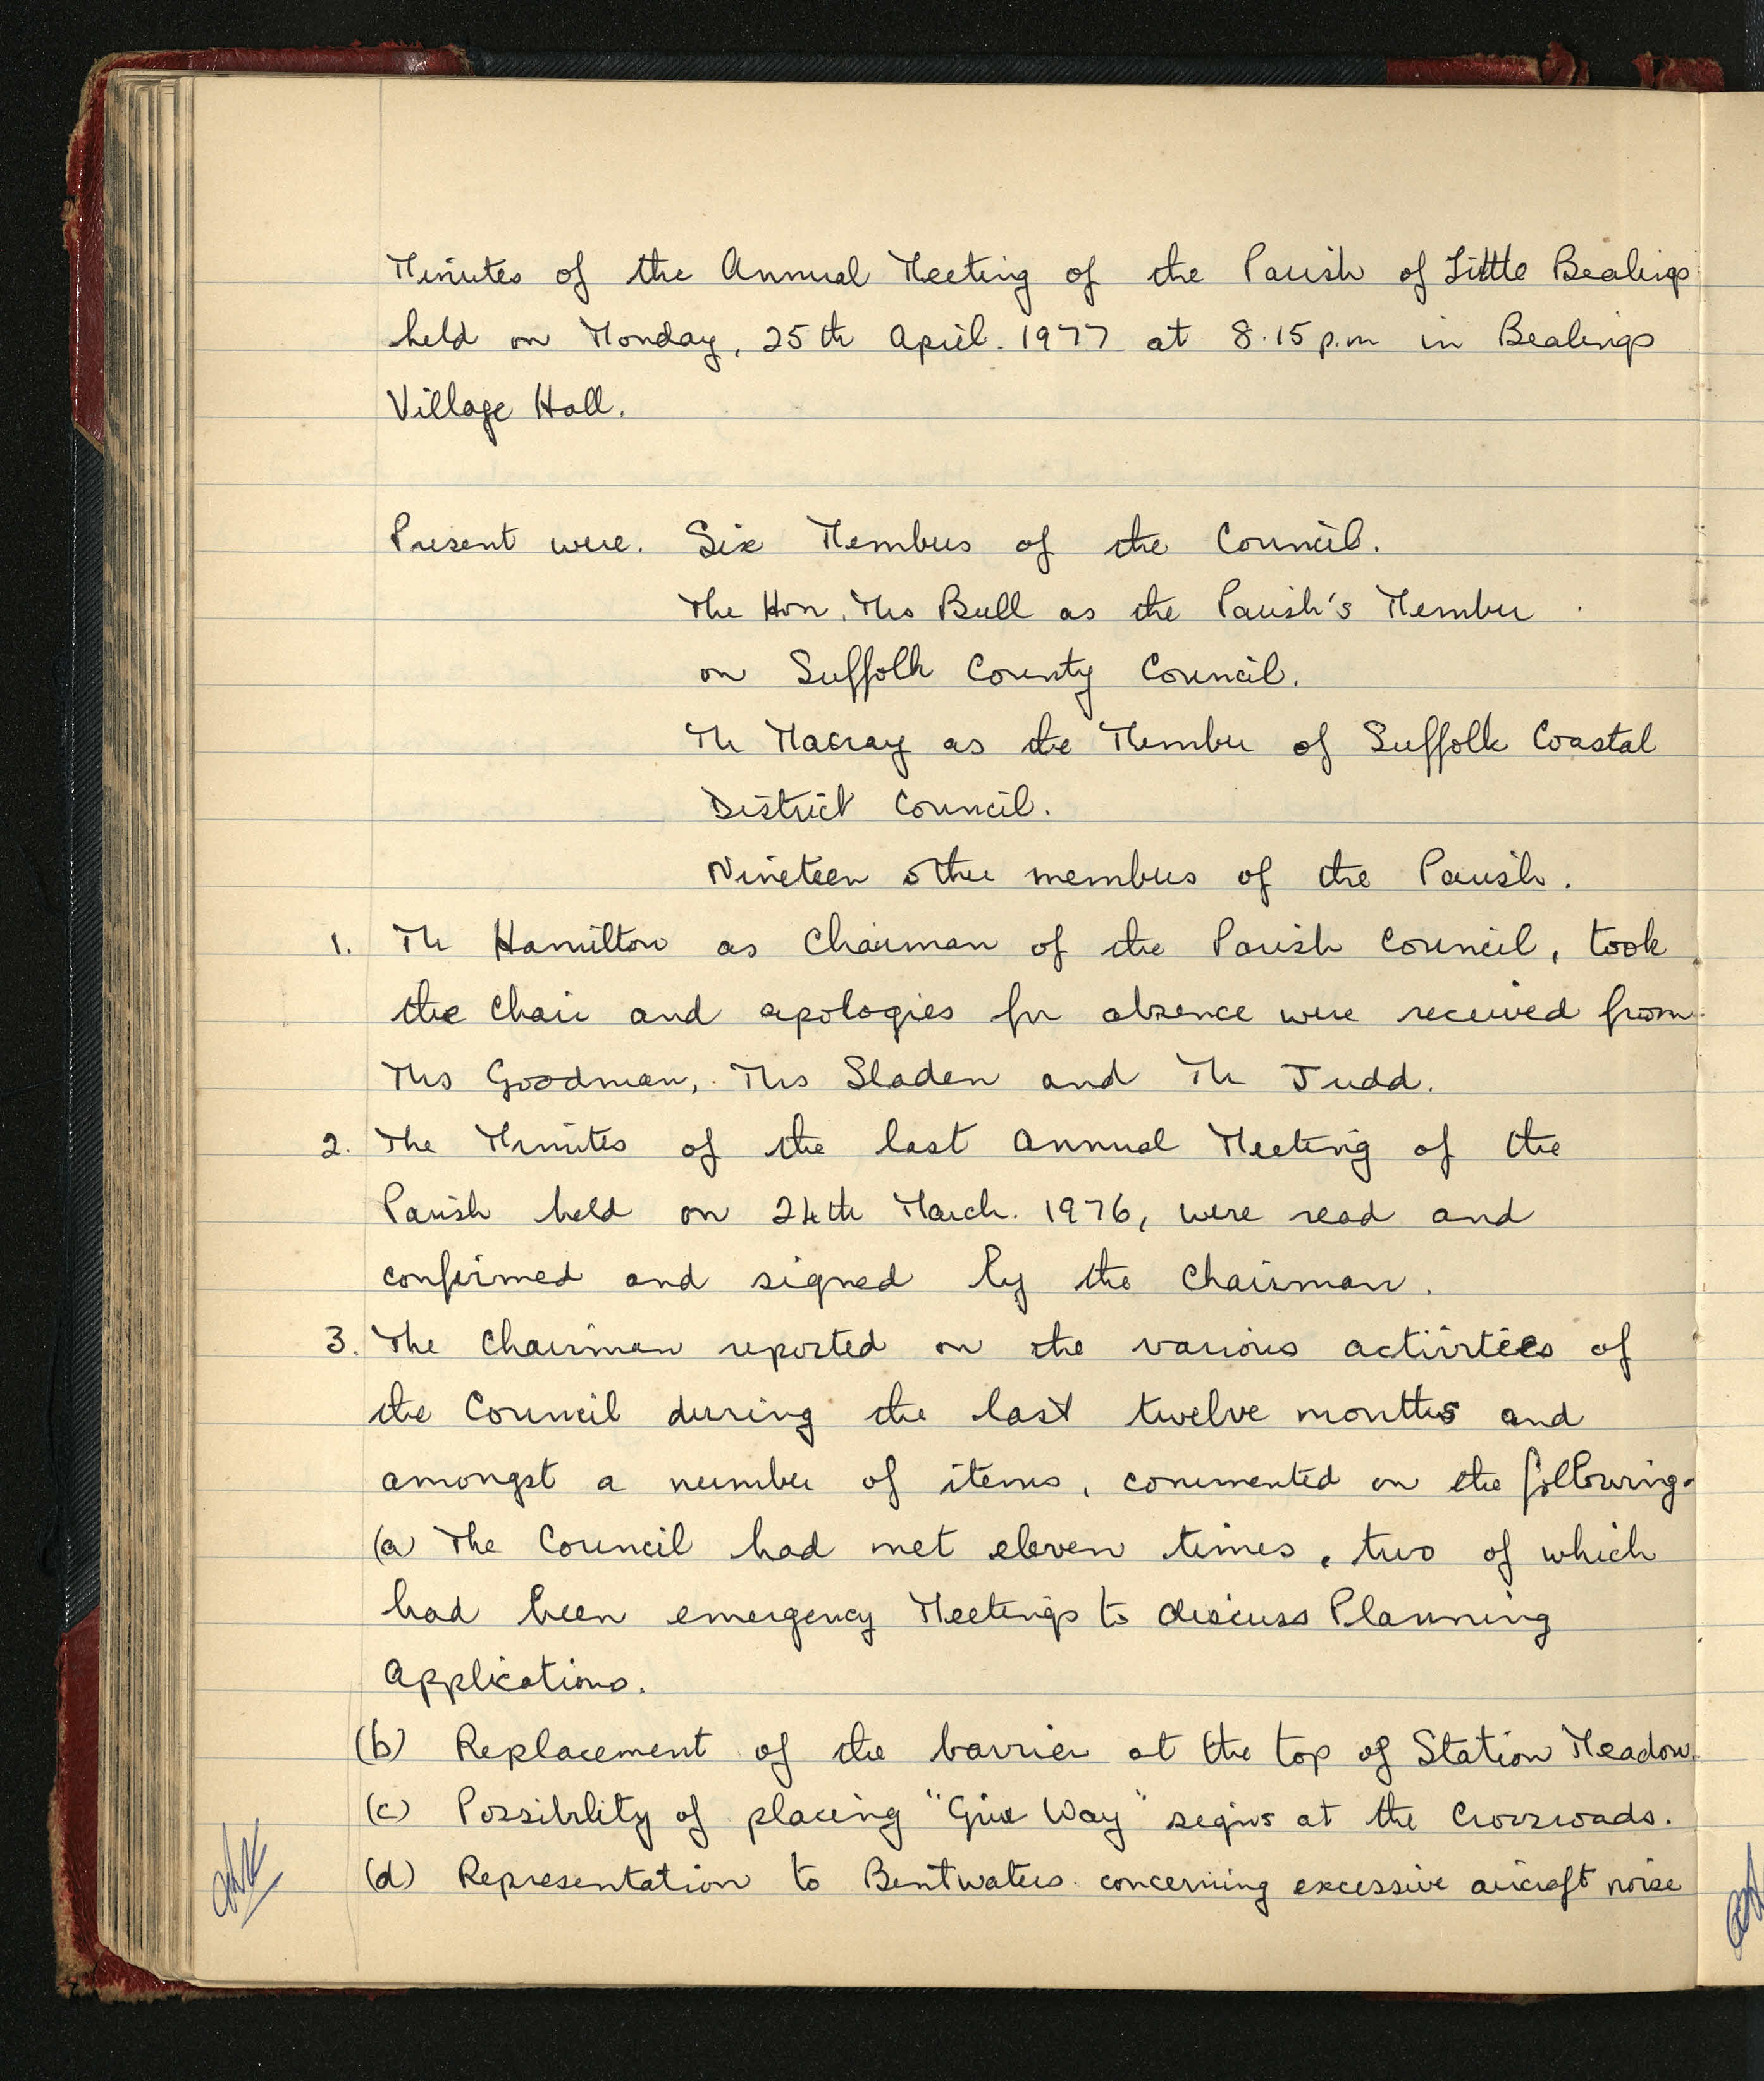 Minutes of the Annual Meeting of the Parish of Little Bealings
held on Monday, 25th April. 1977 at 8.15 p.m in Bealings
Village Hall.
Present were. Six Members of the Council.
The Hon. Mrs Bull as the Parish's Member
on Suffolk County Council.
Mr Macray as the Member of Suffolk Coastal
District Council.
Nineteen other members of the Parish.
1. Mr Hamilton as Chairman of the Parish Council, took
the Chair and apologies for absence were received from
Mrs Goodman, Mrs Sladen and Mr Judd.
2. The Minutes of the last Annual Meeting of the
Parish held on 24th March. 1976, were read and
confirmed and signed by the Chairman.
3. The Chairman reported on the various activities of
the Council during the last twelve months and
amongst a number of items, commented on the following.
(a) The Council had met eleven times, two of which
had been emergency Meetings to discuss Planning
Applications.
(b) Replacement of the barrier at the top of Station Meadow.
(c) Possibility of placing "Give Way" signs at the Crossroads.
(d) Representation to Bentwaters concerning excessive aircraft noise